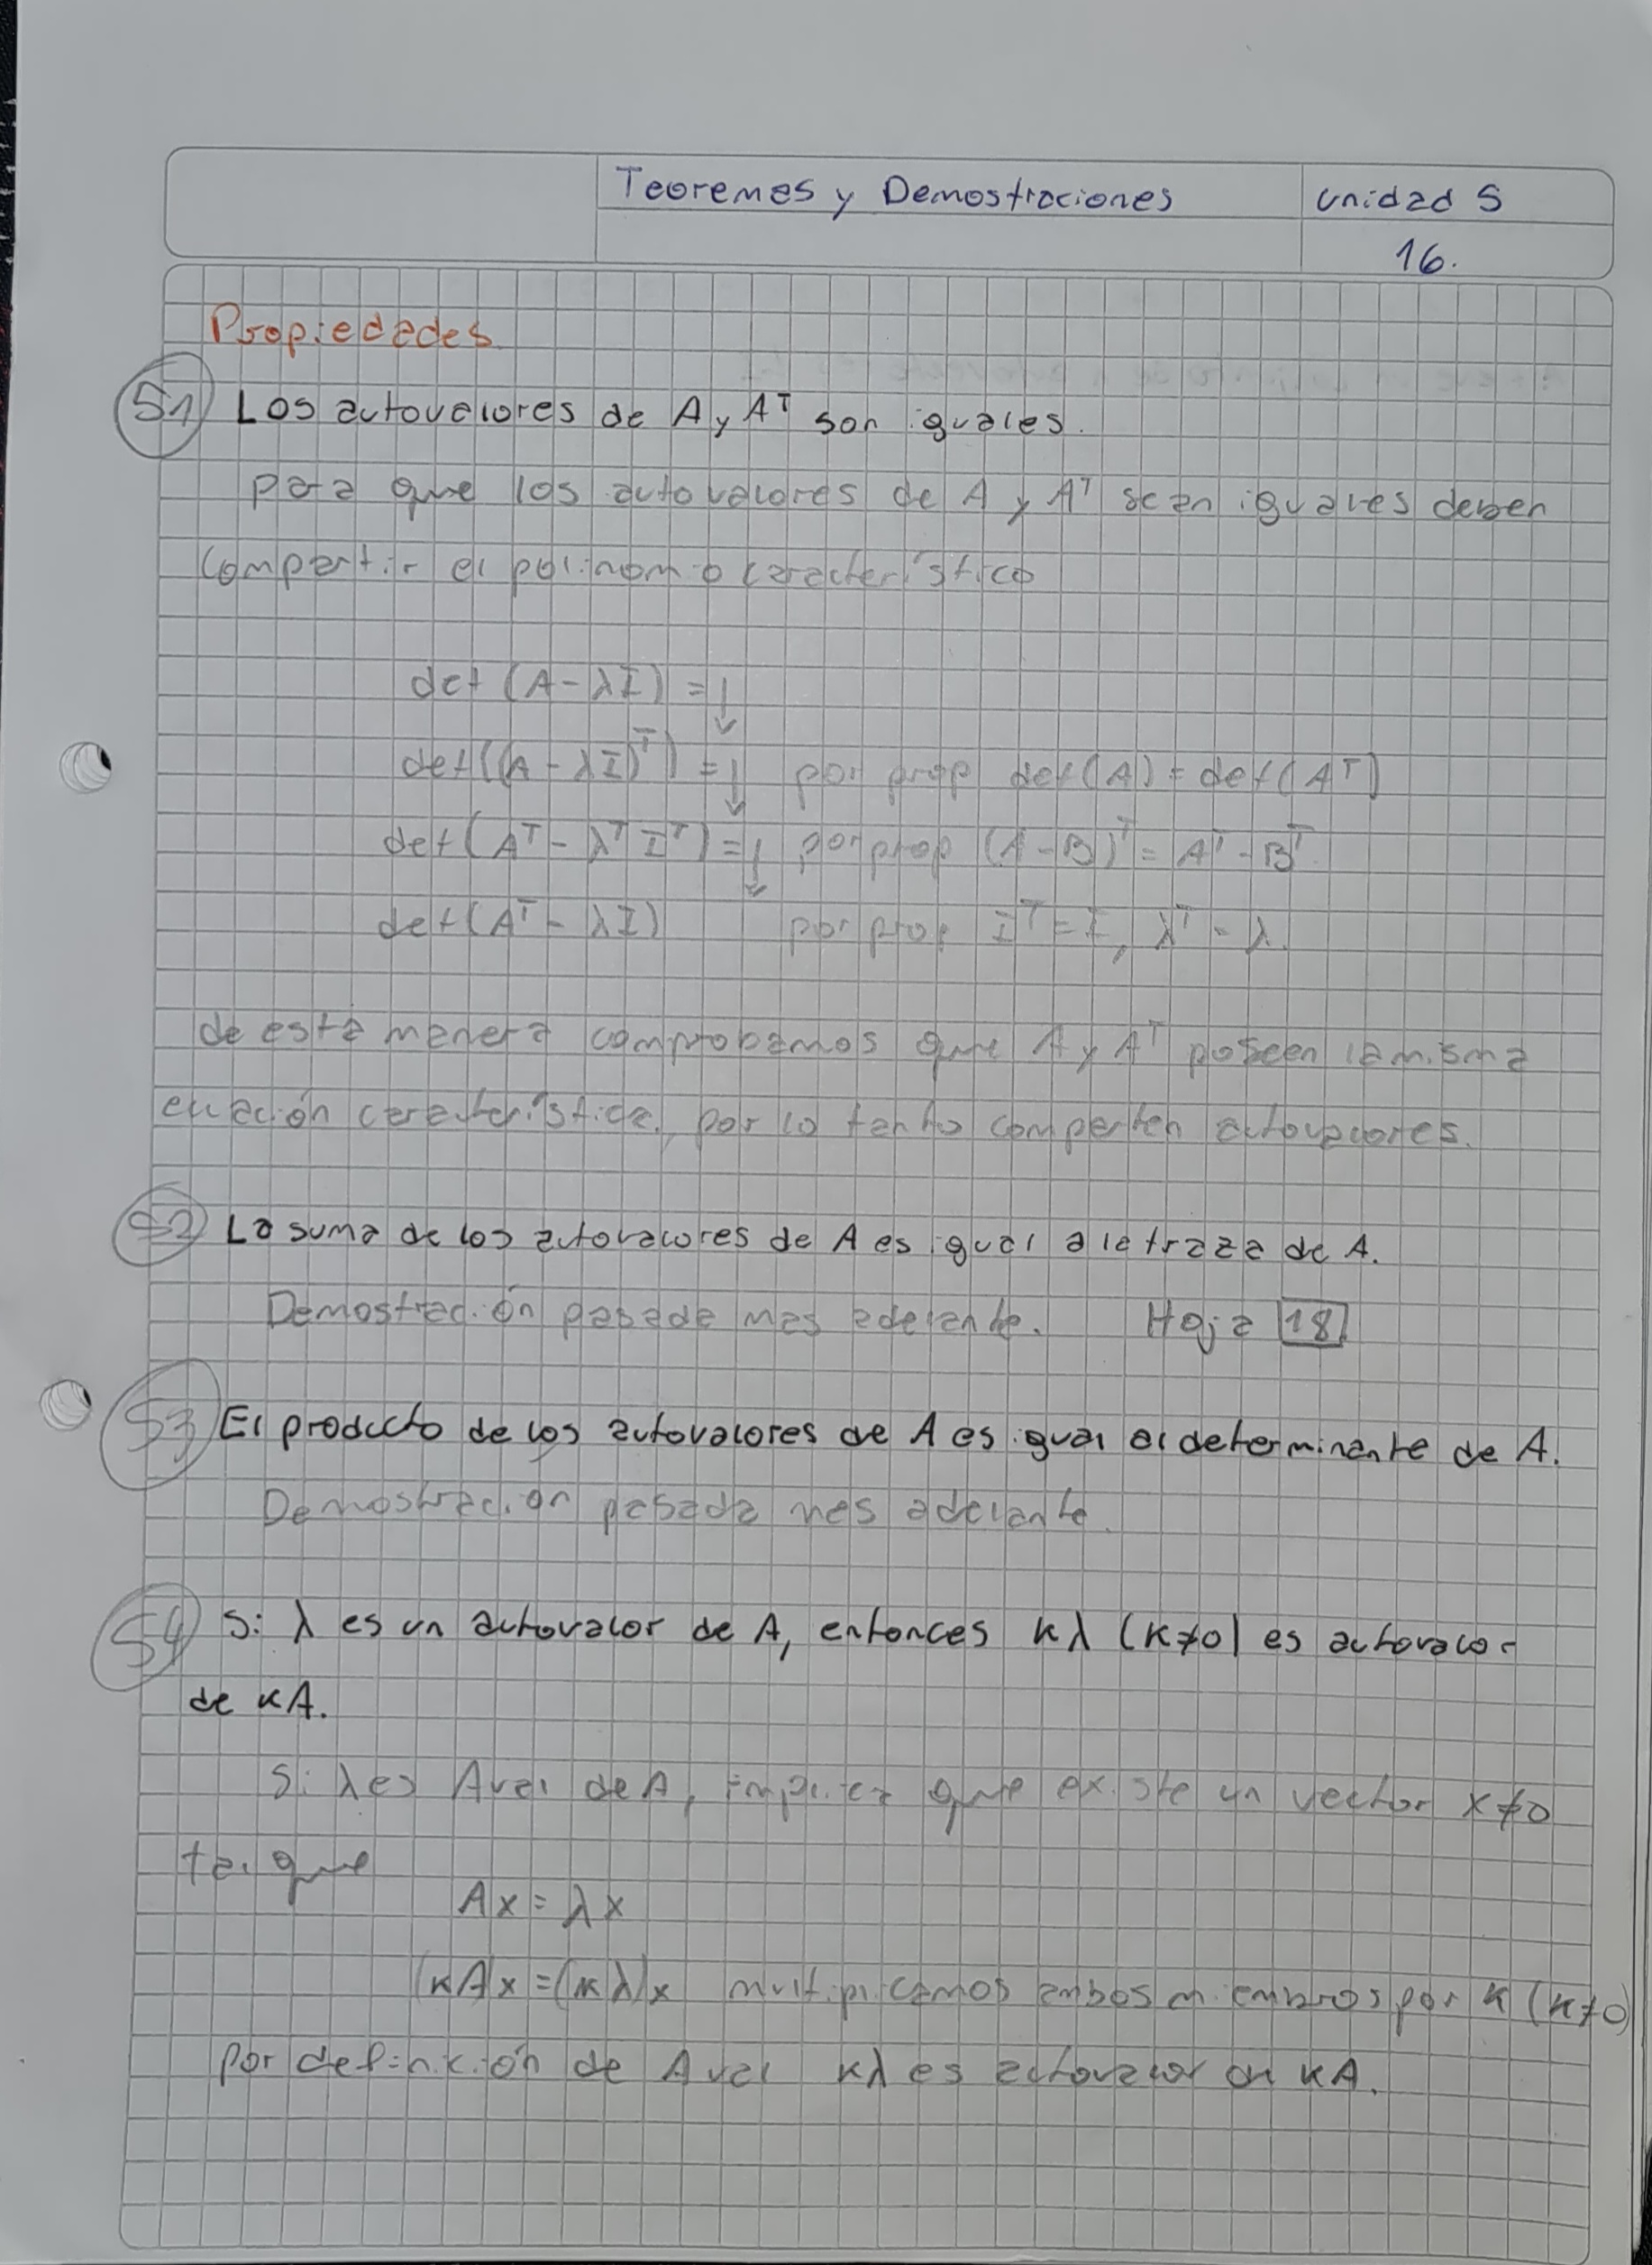 Teoremas y Demostraciones
Unidad 5
16.
Propiedades
51 Los autovalores de A y Aᵀ son iguales.
para que los autovalores de A y Aᵀ sean iguales deben
compartir el polinomio característico
det (A - λI) = ↓
det((A - λI)ᵀ) = ↓ por prop det(A) = det(Aᵀ)
det(Aᵀ - λᵀIᵀ) = ↓ por prop (A - B)ᵀ = Aᵀ - Bᵀ
det(Aᵀ - λI) por prop Iᵀ = I, λᵀ = λ.
de esta manera comprobamos que A y Aᵀ poseen la misma
ecuación característica, por lo tanto comparten autovalores.
52 La suma de los autovalores de A es igual a la traza de A.
Demostración pasada mas adelante. Hoja 18
53 El producto de los autovalores de A es igual al determinante de A.
Demostración pasada mas adelante.
54 Si λ es un autovalor de A, entonces kλ (k≠0) es autovalor
de kA.
Si λ es Aval de A, implica que existe un vector x≠0
tal que
Ax = λx
(kA)x = (kλ)x multiplicamos ambos miembros por k (k≠0)
por definición de Aval kλ es autovalor de kA.